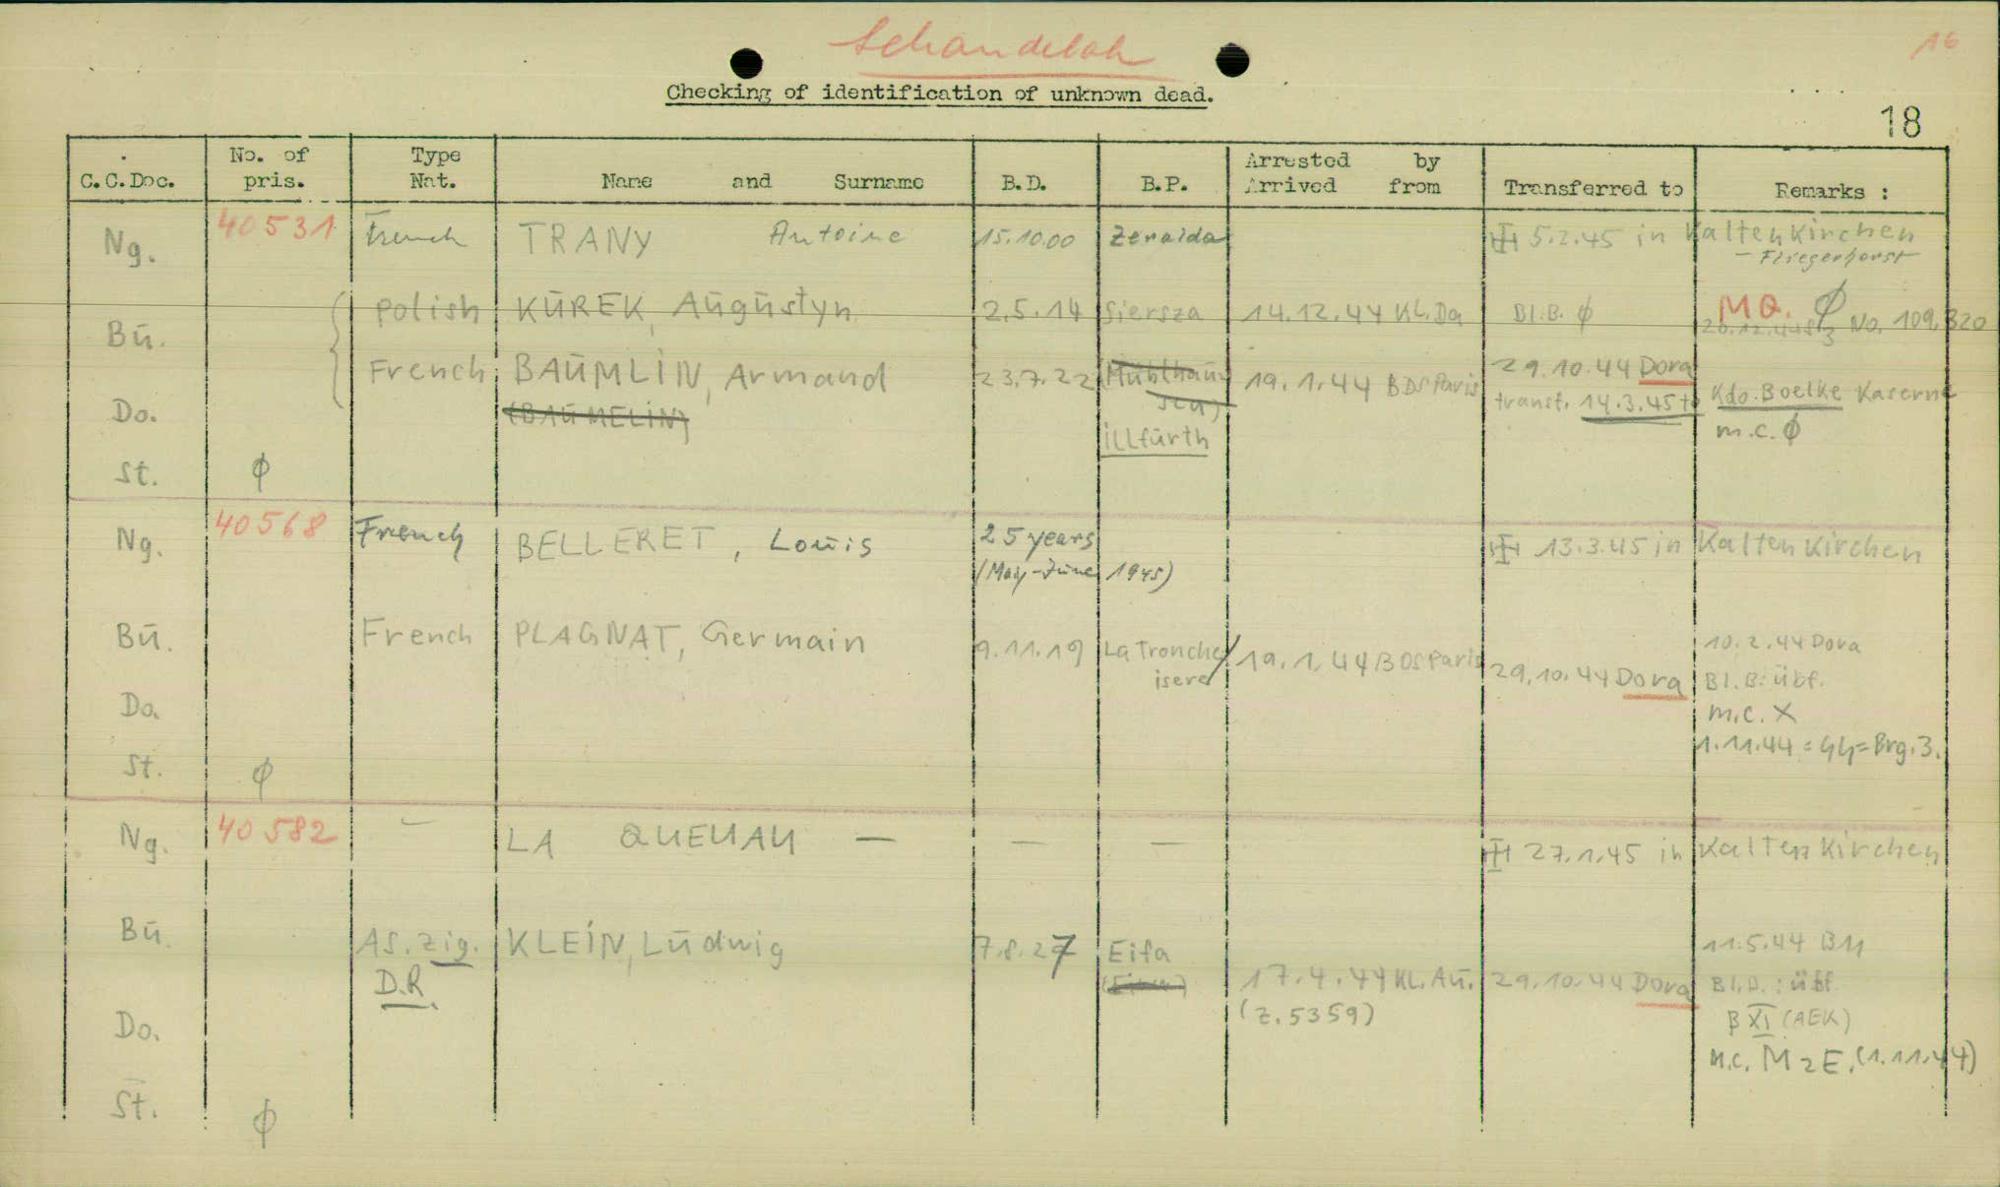 Schandelah
16
Checking of identification of unknown dead.
18
C.C.Doc. No. of pris. Type Nat. Name and Surname B.D. B.P. Arrested by Arrived from Transferred to Remarks :
Ng. 40531 French TRANY Antoine 15.10.00 Zeralda 5.2.45 in Kaltenkirchen
- Fliegerhorst
Bū. polish KŪREK, Aūgūstyn 2.5.14 Siersza 14.12.44 KL.Da Bl.B. ϕ M Q. ϕ
No. 109.320
French BAŪMLIN, Armand 23.7.22 Mühlhaūsen) 19.1.44 BDS Paris 29.10.44 Dora
Do. (BAŪMELIN) transf. 14.3.45 to Kdo. Boelke Kaserne
illfürth m.c. ϕ
St. ϕ
Ng. 40568 French BELLERET, Loūis 25 years 13.3.45 in Kaltenkirchen
(May-Jūne 1945)
Bū. French PLAGNAT, Germain 9.11.19 La Tronche/ 19.1.44 BDS Paris 10.2.44 Dora
isere 29.10.44 Dora Bl.B. übf.
Do. m.c. X
1.11.44 = 44 = Brg. 3.
St. ϕ
Ng. 40582 — LA QUEUAU — — — 27.1.45 in Kaltenkirchen
Bū. As. Zig. KLEIN, Lūdwig 7.8.27 Eifa 11.5.44 B11
D.R. 17.4.44 KL. Aū. 29.10.44 Dora Bl.B.: übf.
(Z. 5359) β XI (AEK)
Do.
m.c. M2E. (1.11.44)
St. ϕ